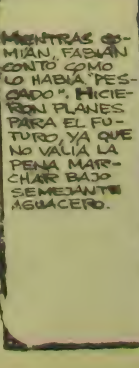 MIENTRAS CO-
MIAN, FABIAN
CONTÓ COMO
LO HABIA "PES-
CADO". HICIE-
RON PLANES
PARA EL FU-
TURO, YA QUE
NO VALIA LA
PENA MAR-
CHAR BAJO
SEMEJANTE
AGUACERO.